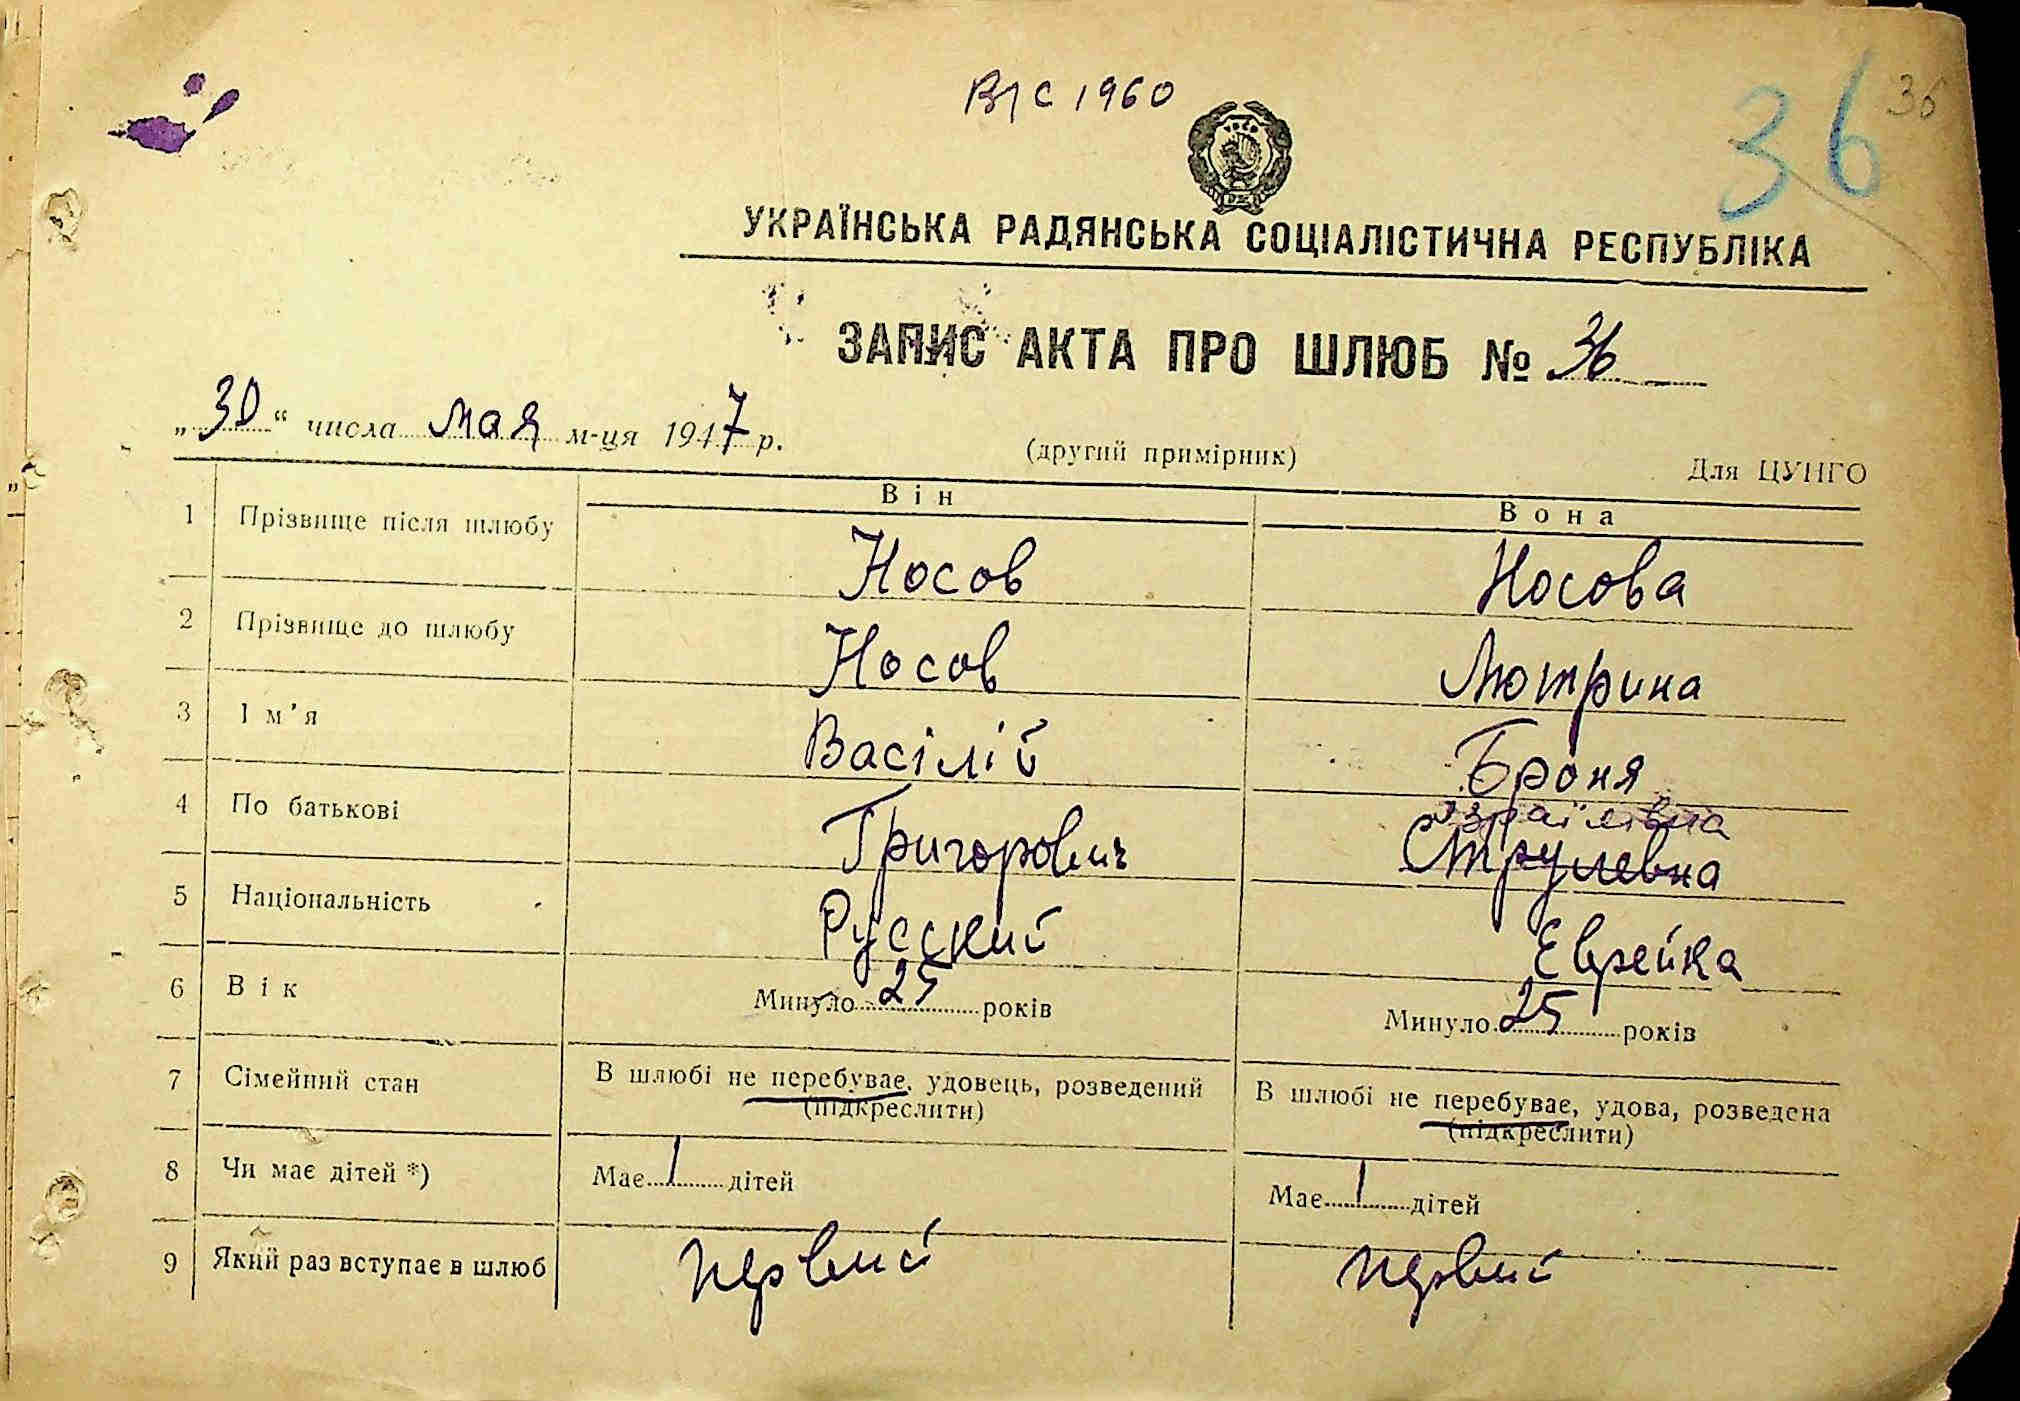 В/С 1960
36 36
УКРАЇНСЬКА РАДЯНСЬКА СОЦІАЛІСТИЧНА РЕСПУБЛІКА
ЗАПИС АКТА ПРО ШЛЮБ № 36
„30“ числа мая м-ця 1947 р.
(другий примірник)
Для ЦУНГО
Він Вона
1 Прізвище після шлюбу Носов Носова
2 Прізвище до шлюбу Носов Лютрина
3 Ім'я Васілій Броня
Ізраїлівна
4 По батькові Григорович Струлевна
5 Національність Русский Еврейка
6 Вік Минуло 25 років Минуло 25 років
7 Сімейний стан В шлюбі не перебуває, удовець, розведений В шлюбі не перебуває, удова, розведена
(підкреслити) (підкреслити)
8 Чи має дітей *) Має 1 дітей Має 1 дітей
9 Який раз вступає в шлюб первий первий